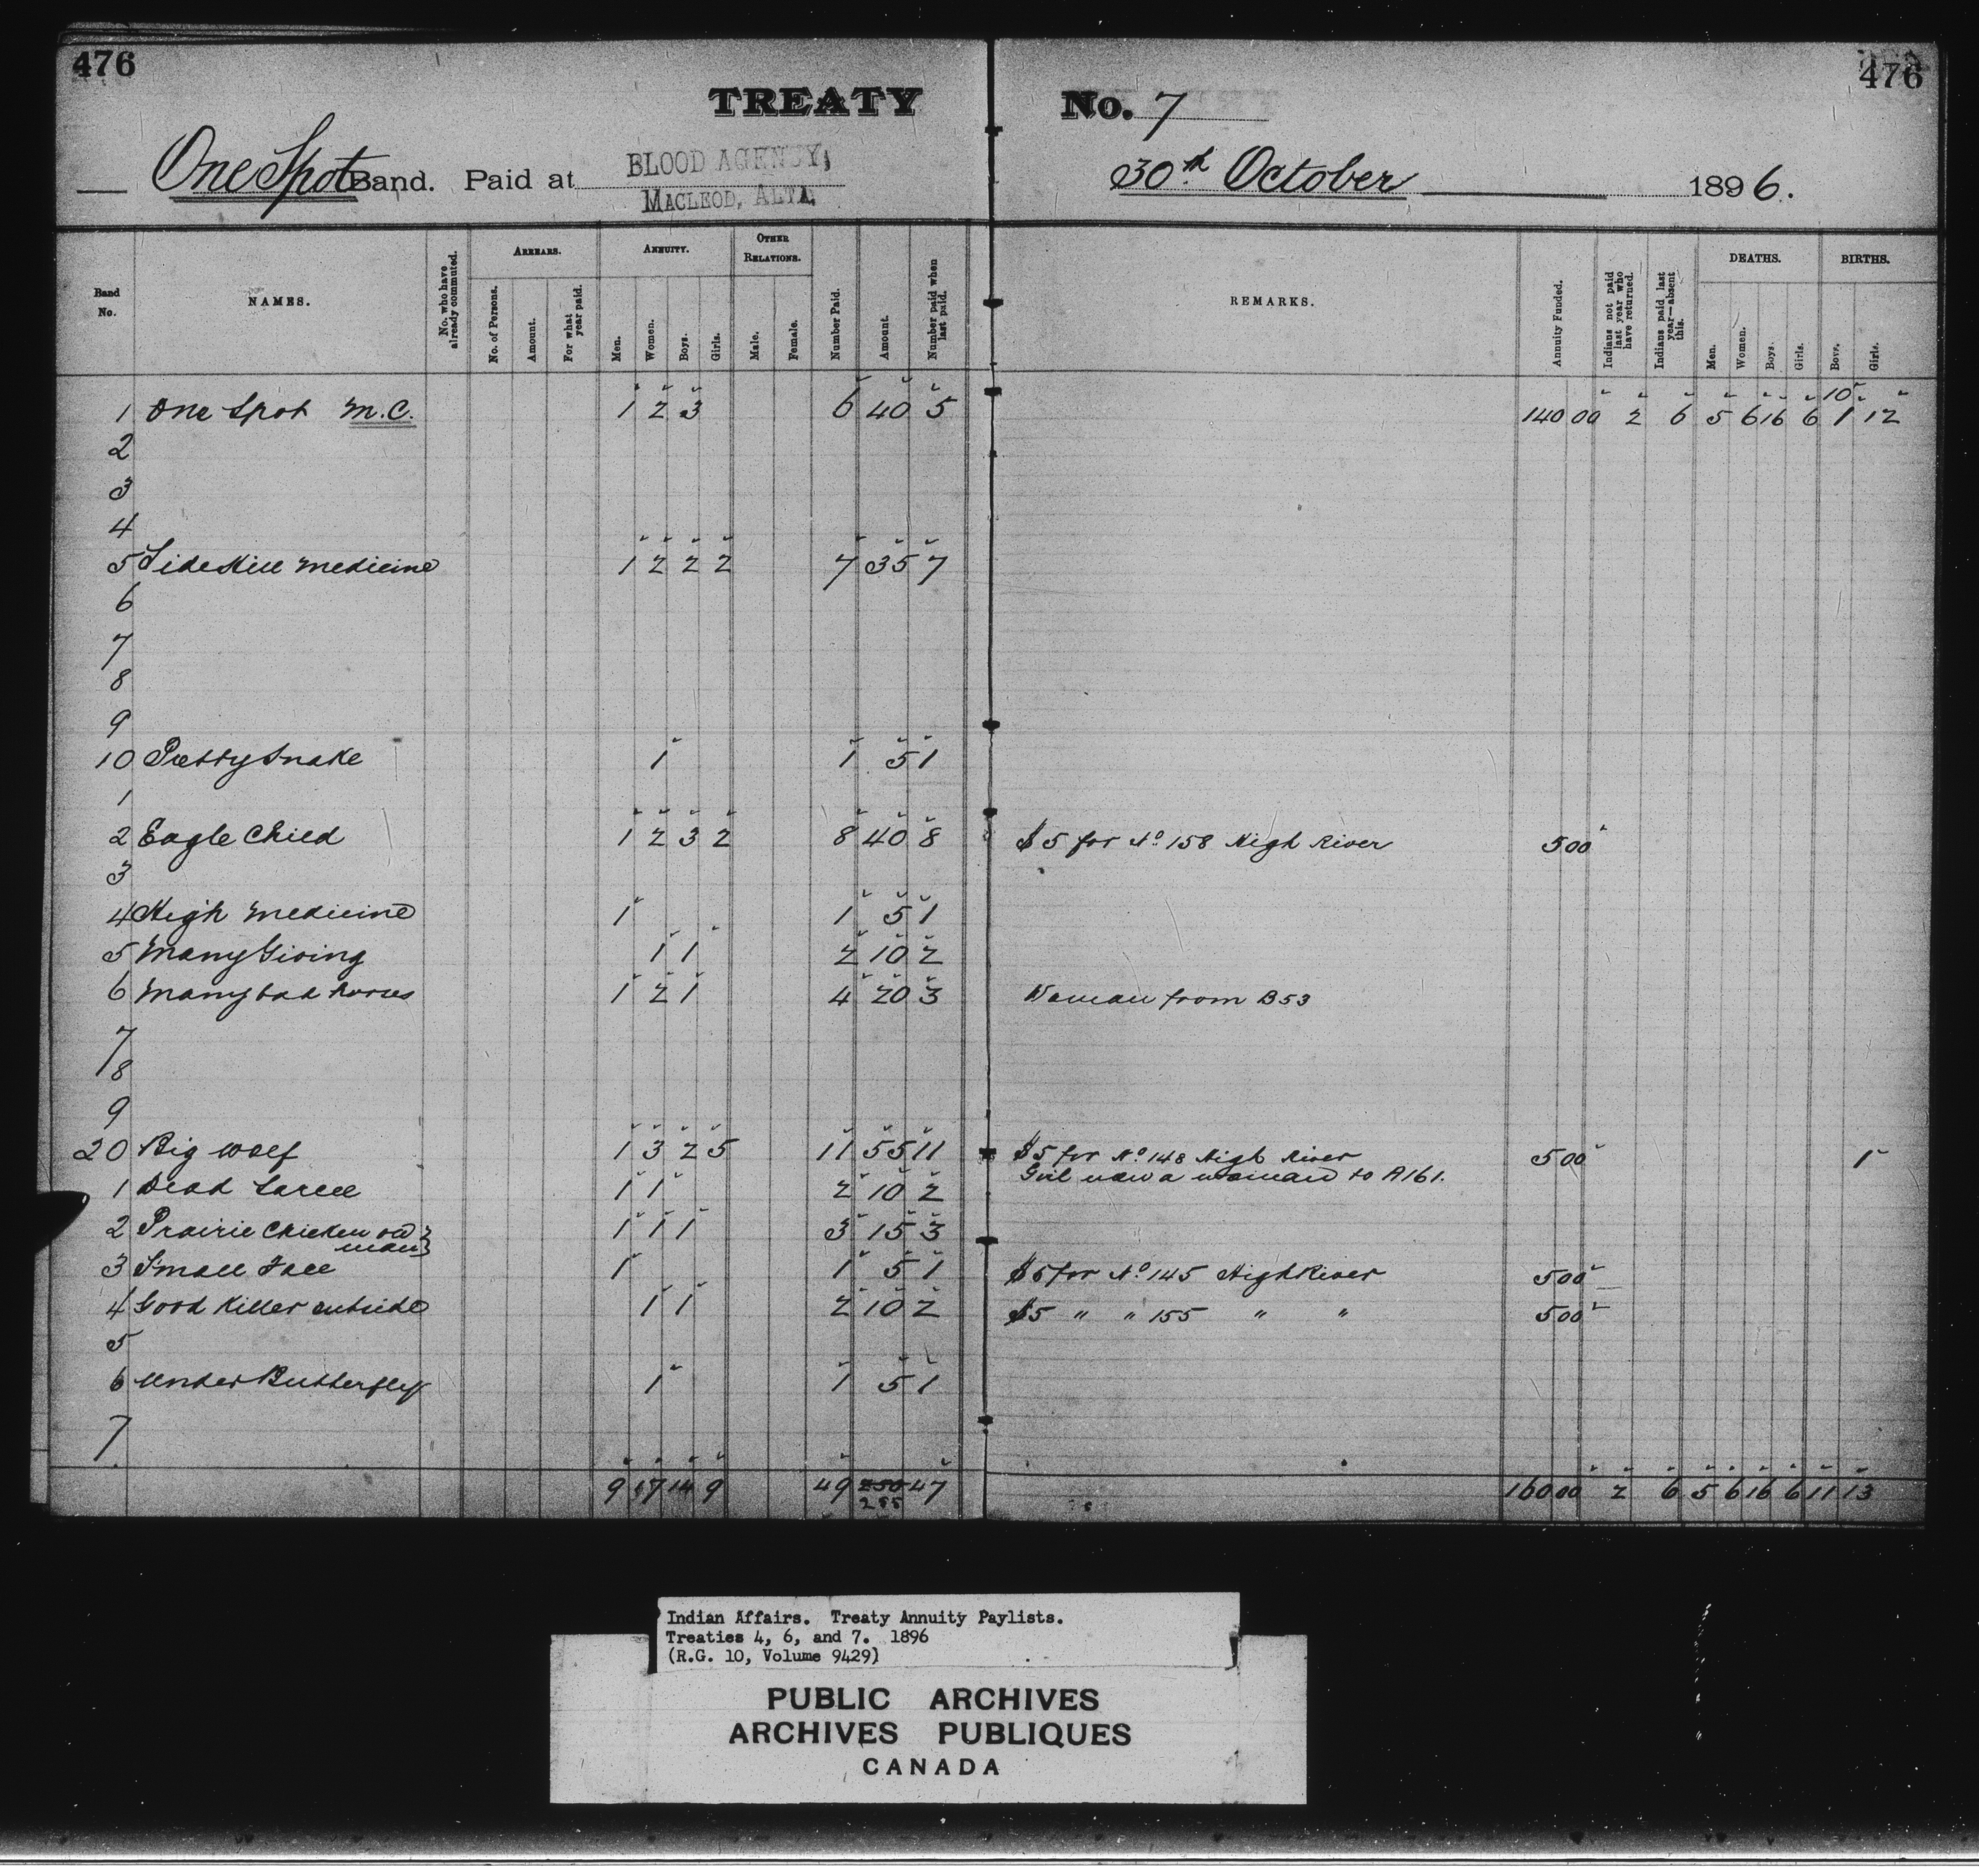 476
476
TREATY No. 7
One Spot Band. Paid at BLOOD AGENCY, MACLEOD, ALTA. 30th October 1896.
Band No.
NAMES.
No. who have already commuted.
ARREARS.
No. of Persons.
Amount.
For what year paid.
ANNUITY.
Men.
Women.
Boys.
Girls.
OTHER RELATIONS.
Male.
Female.
Number Paid.
Amount.
Number paid when last paid.
REMARKS.
Annuity Funded.
Indians not paid last year who have returned.
Indians paid last year—absent this.
DEATHS.
Men.
Women.
Boys.
Girls.
BIRTHS.
Boys.
Girls.
10
1 One Spot M.C. 1 2 3 6 40 5 140 00 2 6 5 6 16 6 1 12
2
3
4
5 Side Hill Medicine 1 2 2 2 7 35 7
6
7
8
9
10 Pretty Snake 1 1 5 1
1
2 Eagle Child 1 2 3 2 8 40 8 $5 for No 158 High River 5 00
3
4 High Medicine 1 1 5 1
5 Many Giving 1 1 2 10 2
6 Many bad horses 1 2 1 4 20 3 Woman from B53
7
8
9
20 Big Wolf 1 3 2 5 11 55 11 $5 for No 148 High River 5 00 1
Girl now a woman to A161.
1 Dead Sarcee 1 1 2 10 2
2 Prairie Chicken old man 1 1 1 3 15 3
3 Small Face 1 1 5 1 $5 for No 145 High River 5 00
4 Good Killer outside 1 1 2 10 2 $5 " " 155 " " 5 00
5
6 Under Butterfly 1 1 5 1
7
9 17 14 9 49 250 47 160 00 2 6 5 6 16 6 11 13
255
Indian Affairs. Treaty Annuity Paylists.
Treaties 4, 6, and 7. 1896
(R.G. 10, Volume 9429)
PUBLIC ARCHIVES
ARCHIVES PUBLIQUES
CANADA